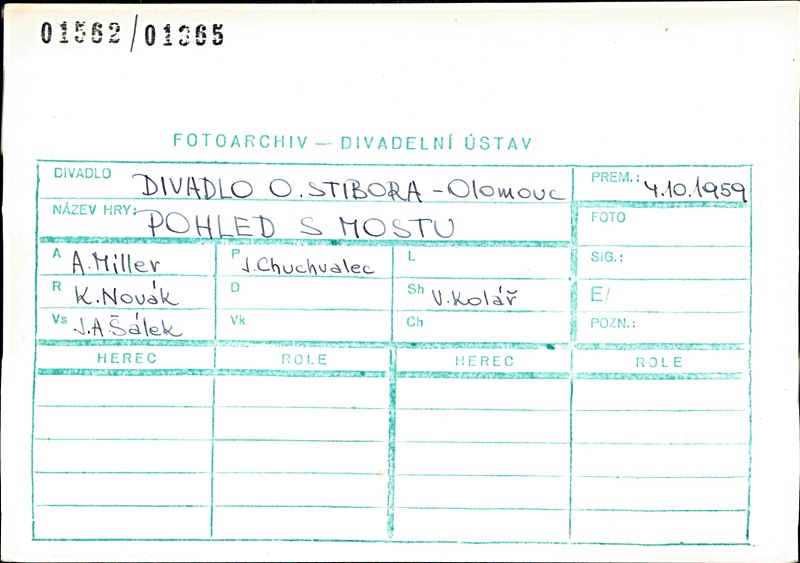 01562/01365
FOTOARCHIV — DIVADELNÍ ÚSTAV
DIVADLO DIVADLO O. STIBORA - Olomouc PREM.: 4.10.1959
NÁZEV HRY: POHLED S MOSTU FOTO
A A. Miller P J. Chuchvalec L SIG.:
R K. Novák D Sh V. Kolář E/
Vs J.A. Šálek Vk Ch POZN.:
HEREC ROLE HEREC ROLE